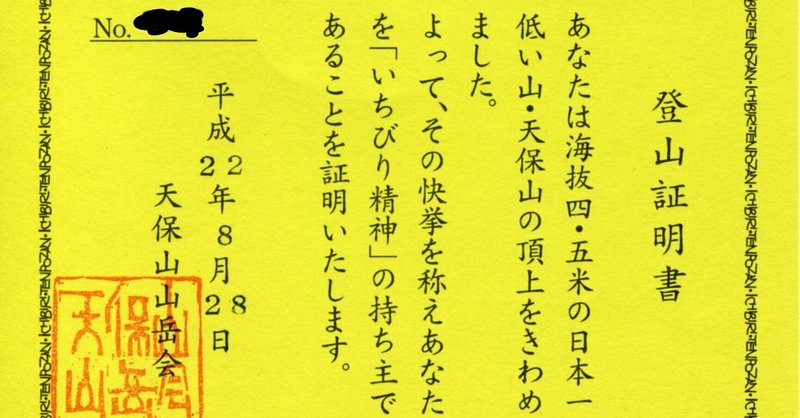 登山証明書
あなたは海抜四・五米の日本一
低い山・天保山の頂上をきわめ
ました。
よって、その快挙を称えあなた
を「いちびり精神」の持ち主で
あることを証明いたします。
平成22年8月28日
天保山山岳会
No.
天保山山岳会
ICHIBIRI・TENPOZAN・ICHIBIRI・TENPOZAN